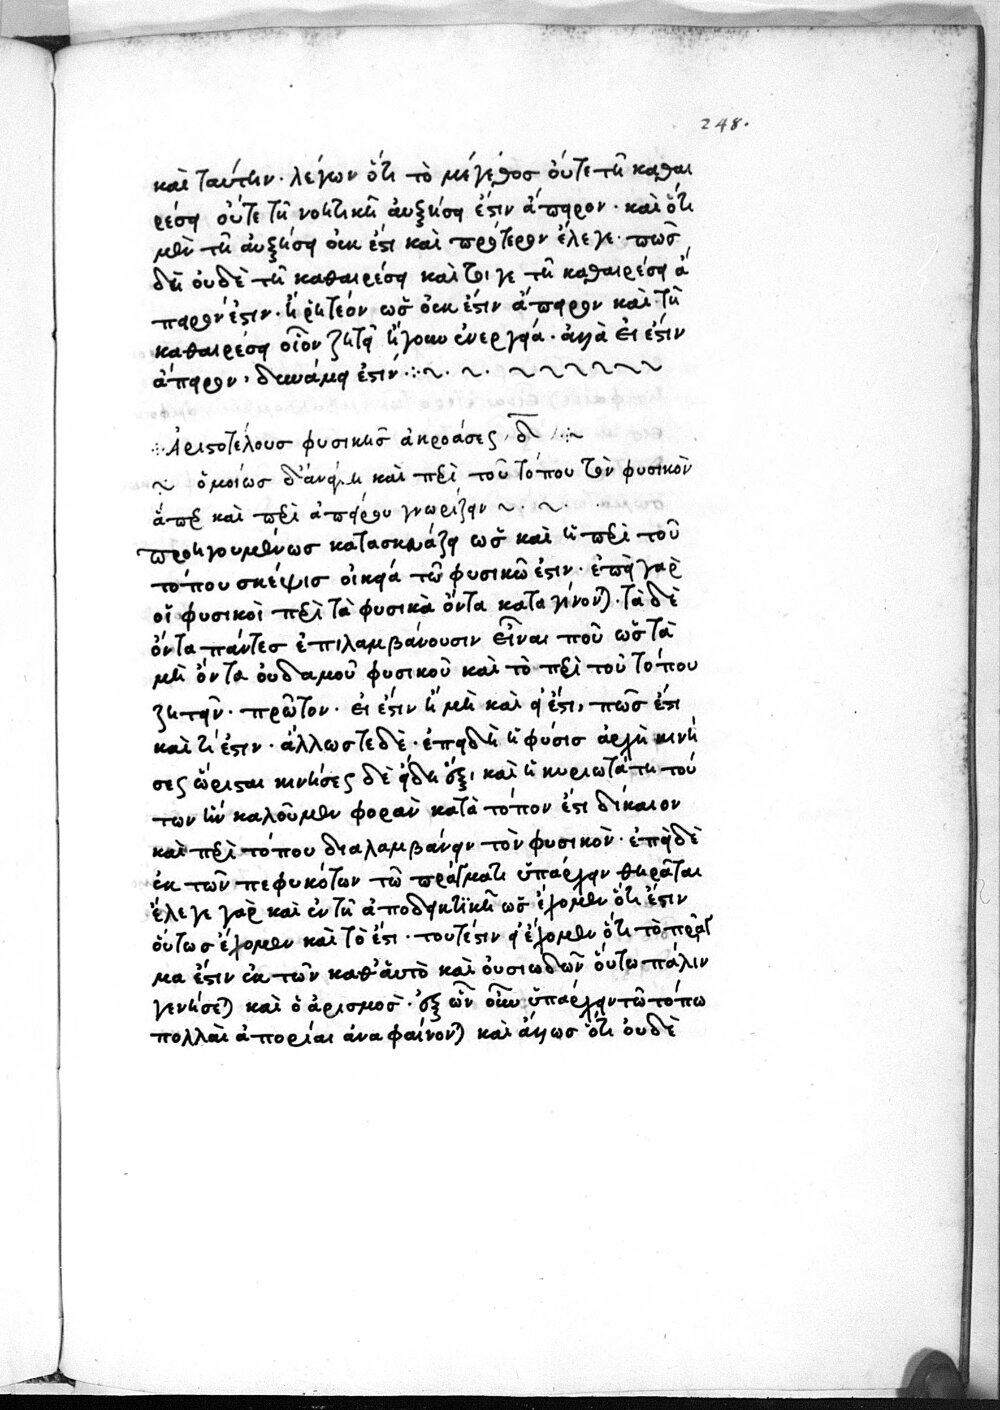 248.
καὶ ταύτην· λέγων ὅτι τὸ μέγεθος οὔτε τῆ καθαι
ρέσει οὔτε τῆ νοητικῆ αὐξήσει ἔστιν ἄπειρον· καὶ ὅτι
μὲν τῆ αὐξήσει οὐκ ἔστι καὶ πρότερον ἔλεγε· πῶς
δὲ οὐδὲ τῆ καθαιρέσει καὶ τοι γε τῆ καθαιρέσει ἄ
πειρόν ἐστιν· ἢ ῥητέον ὡς οὐκ ἔστιν ἄπειρον καὶ τῆ
καθαιρέσει οἷον ζητεῖ ἤγουν ἐνεργείᾳ· ἀλλὰ εἰ ἔστιν
ἄπειρον, δυνάμει ἐστίν
Ἀριστοτέλους φυσικῆς ἀκροάσεως δ
ὁμοίως δ' ἀνάγκη καὶ περὶ τοῦ τόπου τὸν φυσικὸν
ἅπερ καὶ περὶ ἀπείρου γνωρίζειν
προηγουμένως κατασκευάζει ὡς καὶ ἡ περὶ τοῦ
τόπου σκέψις οἰκεία τῶ φυσικῶ ἐστιν· ἐπεὶ γὰρ
οἱ φυσικοὶ περὶ τὰ φυσικὰ ὄντα καταγίνονται· τὰ δὲ
ὄντα πάντες ἐπιλαμβάνουσιν εἶναι ποῦ ὡς τὰ
μὴ ὄντα οὐδαμοῦ φυσικοῦ καὶ τὸ περὶ τοῦ τόπου
ζητεῖν· πρῶτον· εἰ ἔστιν ἢ μὴ καὶ εἰ ἔστι, πῶς ἔστι
καὶ τί ἐστιν· ἄλλως τε δὲ· ἐπειδὴ ἡ φύσις ἀρχὴ κινή
σεως ὥρισται κινήσεως δὲ εἴδη ἕξ, καὶ ἡ κυριωτάτη τού
των ἣν καλοῦμεν φορὰν κατὰ τόπον ἐστι δίκαιον
καὶ περὶ τόπου διαλαμβάνειν τὸν φυσικὸν· ἐπεὶ δὲ
ἐκ τῶν πεφυκότων τῶ πράγματι ὑπάρχειν θηρᾶται
ἔλεγε γὰρ καὶ ἐν τῆ ἀποδεικτικῆ ὡς ἔχομεν ὅτι ἔστιν
οὕτως ἔχομεν καὶ τὸ ἔστι· τουτέστιν εἰ ἔχομεν ὅτι τὸ πρᾶγ
μα ἔστιν ἐκ τῶν καθ' αὑτὸ καὶ οὐσιωδῶν οὕτω πάλιν
γενήσεται καὶ ὁ ὁρισμὸς· ἐξ ὧν οὖν ὑπάρχειν τῶ τόπω
πολλαὶ ἀπορίαι ἀναφαίνονται καὶ ἄλλως ὅτι οὐδὲ